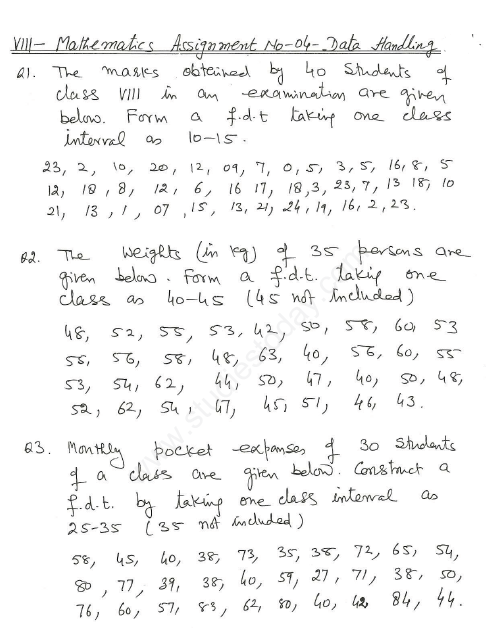 VIII- Mathematics Assignment No-04- Data Handling.
Q1. The marks obtained by 40 Students of
class VIII in an examination are given
below. Form a f.d.t taking one class
interval as 10-15.
23, 2, 10, 20, 12, 09, 7, 0, 5, 3, 5, 16, 8, 5
12, 18, 8, 12, 6, 16 17, 18, 3, 23, 7, 13 18, 10
21, 13, 1, 07, 15, 13, 21, 24, 19, 16, 2, 23.
Q2. The Weights (in kg) of 35 persons are
given below. Form a f.d.t. taking one
class as 40-45 (45 not included)
48, 52, 55, 53, 42, 50, 58, 60, 53
55, 56, 58, 48, 63, 40, 56, 60, 55
53, 54, 62, 44, 50, 47, 40, 50, 48,
52, 62, 54, 47, 45, 51, 46, 43.
Q3. Monthly pocket expanses of 30 Students
of a class are given below. Construct a
f.d.t. by taking one class interval as
25-35 (35 not included)
58, 45, 40, 38, 73, 35, 38, 72, 65, 54,
80, 77, 39, 38, 40, 59, 27, 71, 38, 50,
76, 60, 57, 83, 62, 80, 40, 42 84, 44.
www.studiestoday.com